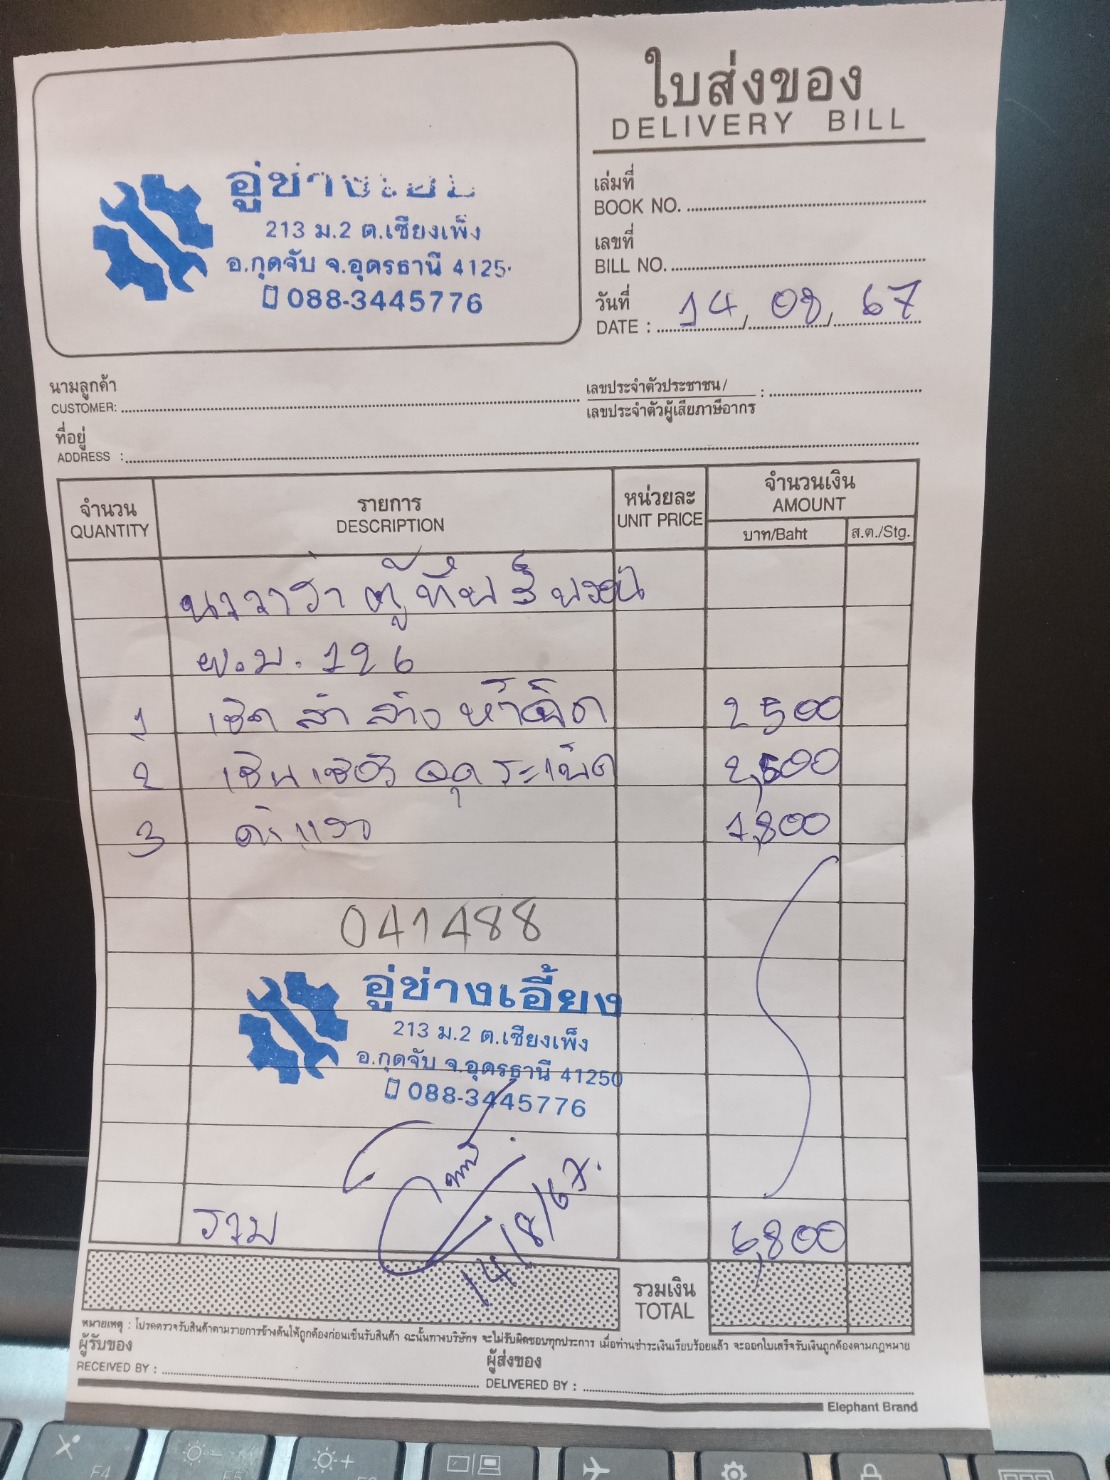 ใบส่งของ
DELIVERY BILL
อู่ช่างเอี้ยง
213 ม.2 ต.เชียงเพ็ง
อ.กุดจับ จ.อุดรธานี 4125
088-3445776
เล่มที่
BOOK NO.
เลขที่
BILL NO.
วันที่
DATE : 14, 08, 67
นามลูกค้า
CUSTOMER:
เลขประจำตัวประชาชน/
เลขประจำตัวผู้เสียภาษีอากร :
ที่อยู่
ADDRESS :
จำนวน รายการ หน่วยละ จำนวนเงิน
QUANTITY DESCRIPTION UNIT PRICE AMOUNT
บาท/Baht ส.ต./Stg.
นาวาร่า ตู้ทึบ
ผ.บ. 126
1 เชิด ล้าง หัวฉีด 2500
2 เชื่อม 2,500
3 ค่าแรง 1,800
041488
อู่ช่างเอี้ยง
213 ม.2 ต.เชียงเพ็ง
อ.กุดจับ จ.อุดรธานี 41250
088-3445776
14/8/67.
รวม 6,800
รวมเงิน
TOTAL
หมายเหตุ : โปรดตรวจรับสินค้าตามรายการข้างต้นให้ถูกต้องก่อนเซ็นรับสินค้า ฉะนั้นทางบริษัทฯ จะไม่รับผิดชอบทุกประการ เมื่อท่านชำระเงินเรียบร้อยแล้ว จะออกใบเสร็จรับเงินถูกต้องตามกฎหมาย
ผู้รับของ
RECEIVED BY :
ผู้ส่งของ
DELIVERED BY :
Elephant Brand